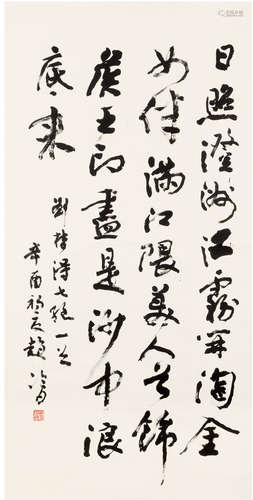 日照澄洲江霧開淘金
女伴滿江隈美人首飾
侯王印盡是沙中浪
底來
劉夢得七絕一首
辛酉初夏趙冷月